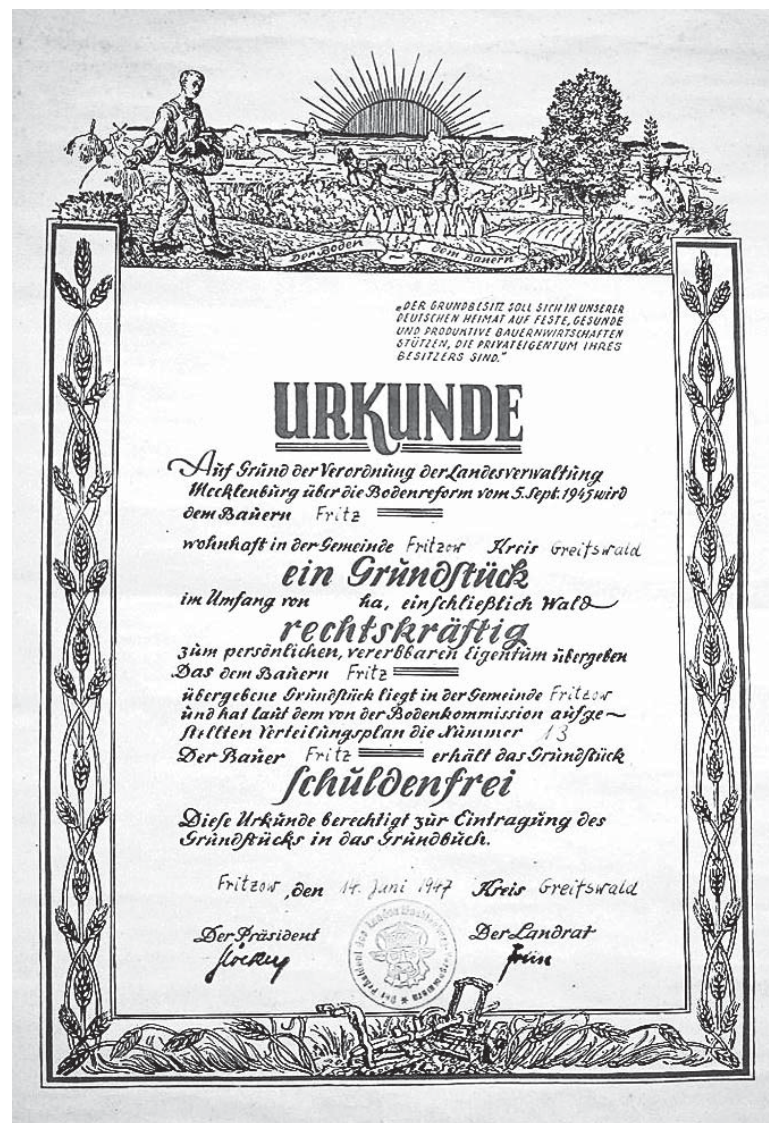 Der Boden dem Bauern
„DER GRUNDBESITZ SOLL SICH IN UNSERER
DEUTSCHEN HEIMAT AUF FESTE, GESUNDE
UND PRODUKTIVE BAUERNWIRTSCHAFTEN
STÜTZEN, DIE PRIVATEIGENTUM IHRES
BESITZERS SIND."
URKUNDE
Auf Grund der Verordnung der Landesverwaltung
Mecklenburg über die Bodenreform vom 5. Sept. 1945 wird
dem Bauern Fritz
wohnhaft in der Gemeinde Fritzow Kreis Greifswald
ein Grundstück
im Umfang von ha, einschließlich Wald
rechtskräftig
zum persönlichen, vererbbaren Eigentum übergeben
Das dem Bauern Fritz
übergebene Grundstück liegt in der Gemeinde Fritzow
und hat laut dem von der Bodenkommission aufge-
stellten Verteilungsplan die Nummer 13
Der Bauer Fritz erhält das Grundstück
schuldenfrei
Diese Urkunde berechtigt zur Eintragung des
Grundstücks in das Grundbuch.
Fritzow, den 14. Juni 1947 Kreis Greifswald
Der Präsident Der Landrat
Der Präsident des Landes Mecklenburg